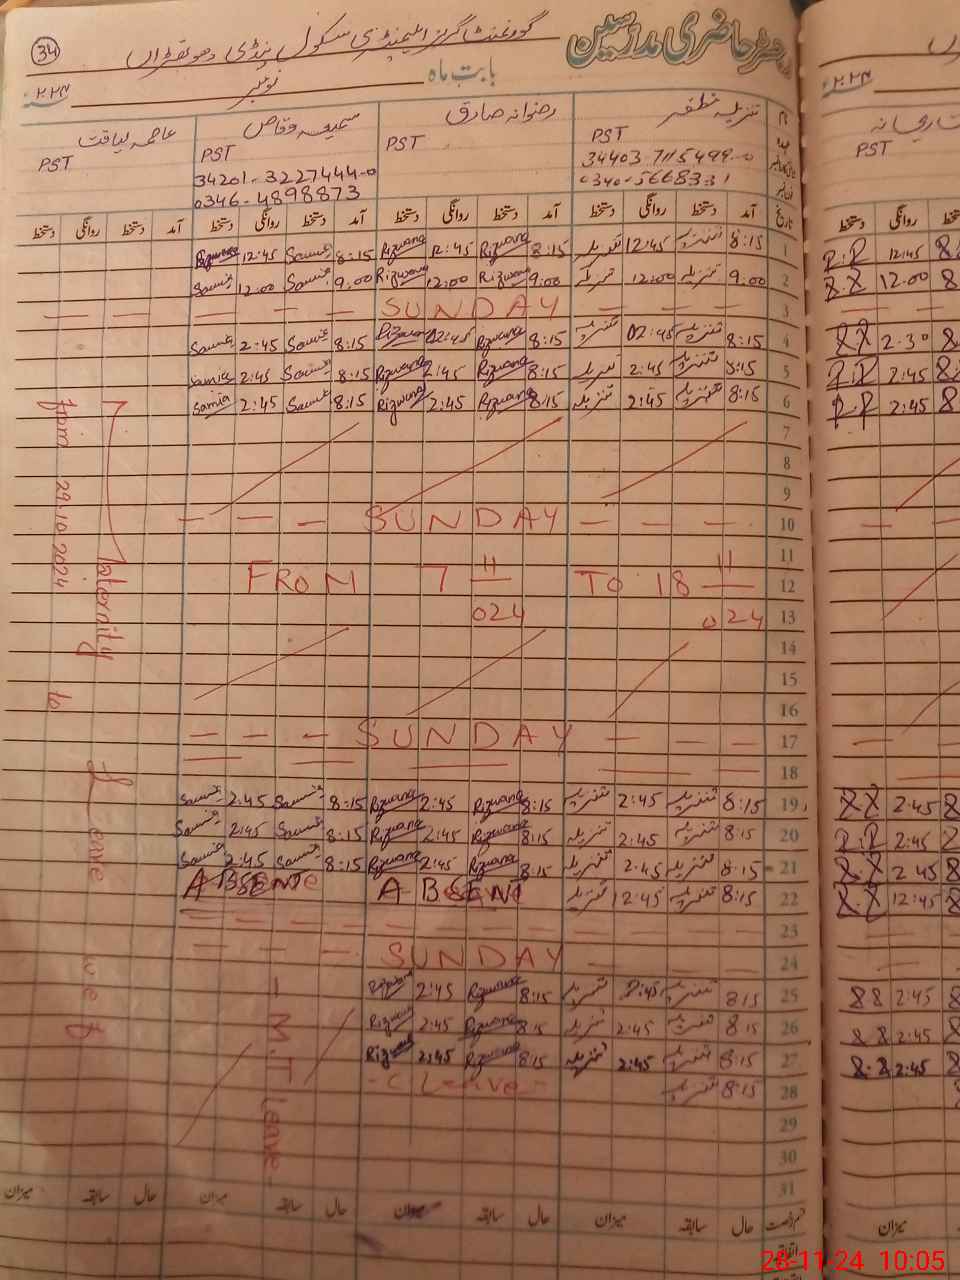 رجسٹر حاضری مدرسین گورنمنٹ گرلز ایلیمنٹری سکول پنڈی 34
بابت ماہ نومبر ۲۰۲۴ء
تنزیلہ مظفر رضوانہ صادق سمیعہ وقاص عاصمہ لیاقت
PST PST PST PST PST
34403-7115499-0 34201-3227444-0
0340-5668331 0346-4898873
تاریخ آمد دستخط روانگی دستخط آمد دستخط روانگی دستخط آمد دستخط روانگی دستخط آمد دستخط روانگی دستخط
1 8:15 تنزیلہ 12:45 تنزیلہ 8:15 Rizwana 12:45 Rizwana 8:15 Samia 12:45 R.R 12:45
2 9:00 تنزیلہ 12:00 تنزیلہ 9:00 Rizwana 12:00 Rizwana 9:00 Samia 12:00 Samia R.R 12:00
3 — — — SUNDAY — — —
4 8:15 تنزیلہ 02:45 تنزیلہ 8:15 Rizwana 02:45 Rizwana 8:15 Samia 2:45 Samia RR 2:30
5 8:15 تنزیلہ 2:45 تنزیلہ 8:15 Rizwana 2:45 Rizwana 8:15 Samia 2:45 Samia R.R 2:45
6 8:15 تنزیلہ 2:45 تنزیلہ 8:15 Rizwana 2:45 Rizwana 8:15 Samia 2:45 Samia R.R 2:45
7
8
9
10 — — — SUNDAY — — —
11
12 FROM 7 11 TO 18 11
13 024 024
14
15
16
17 — — — SUNDAY — — —
18
19 8:15 تنزیلہ 2:45 تنزیلہ 8:15 Rizwana 2:45 Rizwana 8:15 Samia 2:45 Samia RR 2:45
20 8:15 تنزیلہ 2:45 تنزیلہ 8:15 Rizwana 2:45 Rizwana 8:15 Samia 2:45 Samia R.R 2:45
21 8:15 تنزیلہ 2:45 تنزیلہ 8:15 Rizwana 2:45 Rizwana 8:15 Samia 2:45 Samia RR 2:45
22 8:15 تنزیلہ 12:45 تنزیلہ ABSENT ABSENT R.R 12:45
23
24 — — — SUNDAY — — —
25 8:15 تنزیلہ 2:45 تنزیلہ 8:15 Rizwana 2:45 Rizwana RR 2:45
26 8:15 تنزیلہ 2:45 تنزیلہ 8:15 Rizwana 2:45 Rizwana RR 2:45
27 8:15 تنزیلہ 2:45 تنزیلہ 8:15 Rizwana 2:45 Rizwana R.R 2:45
28 8:15 تنزیلہ - C Leave -
29
30
31
- M.T Leave -
Maternity Leave
from 29.10.2024 to
حال سابقہ میزان حال سابقہ میزان حال سابقہ میزان حال سابقہ میزان
28-11-24 10:05